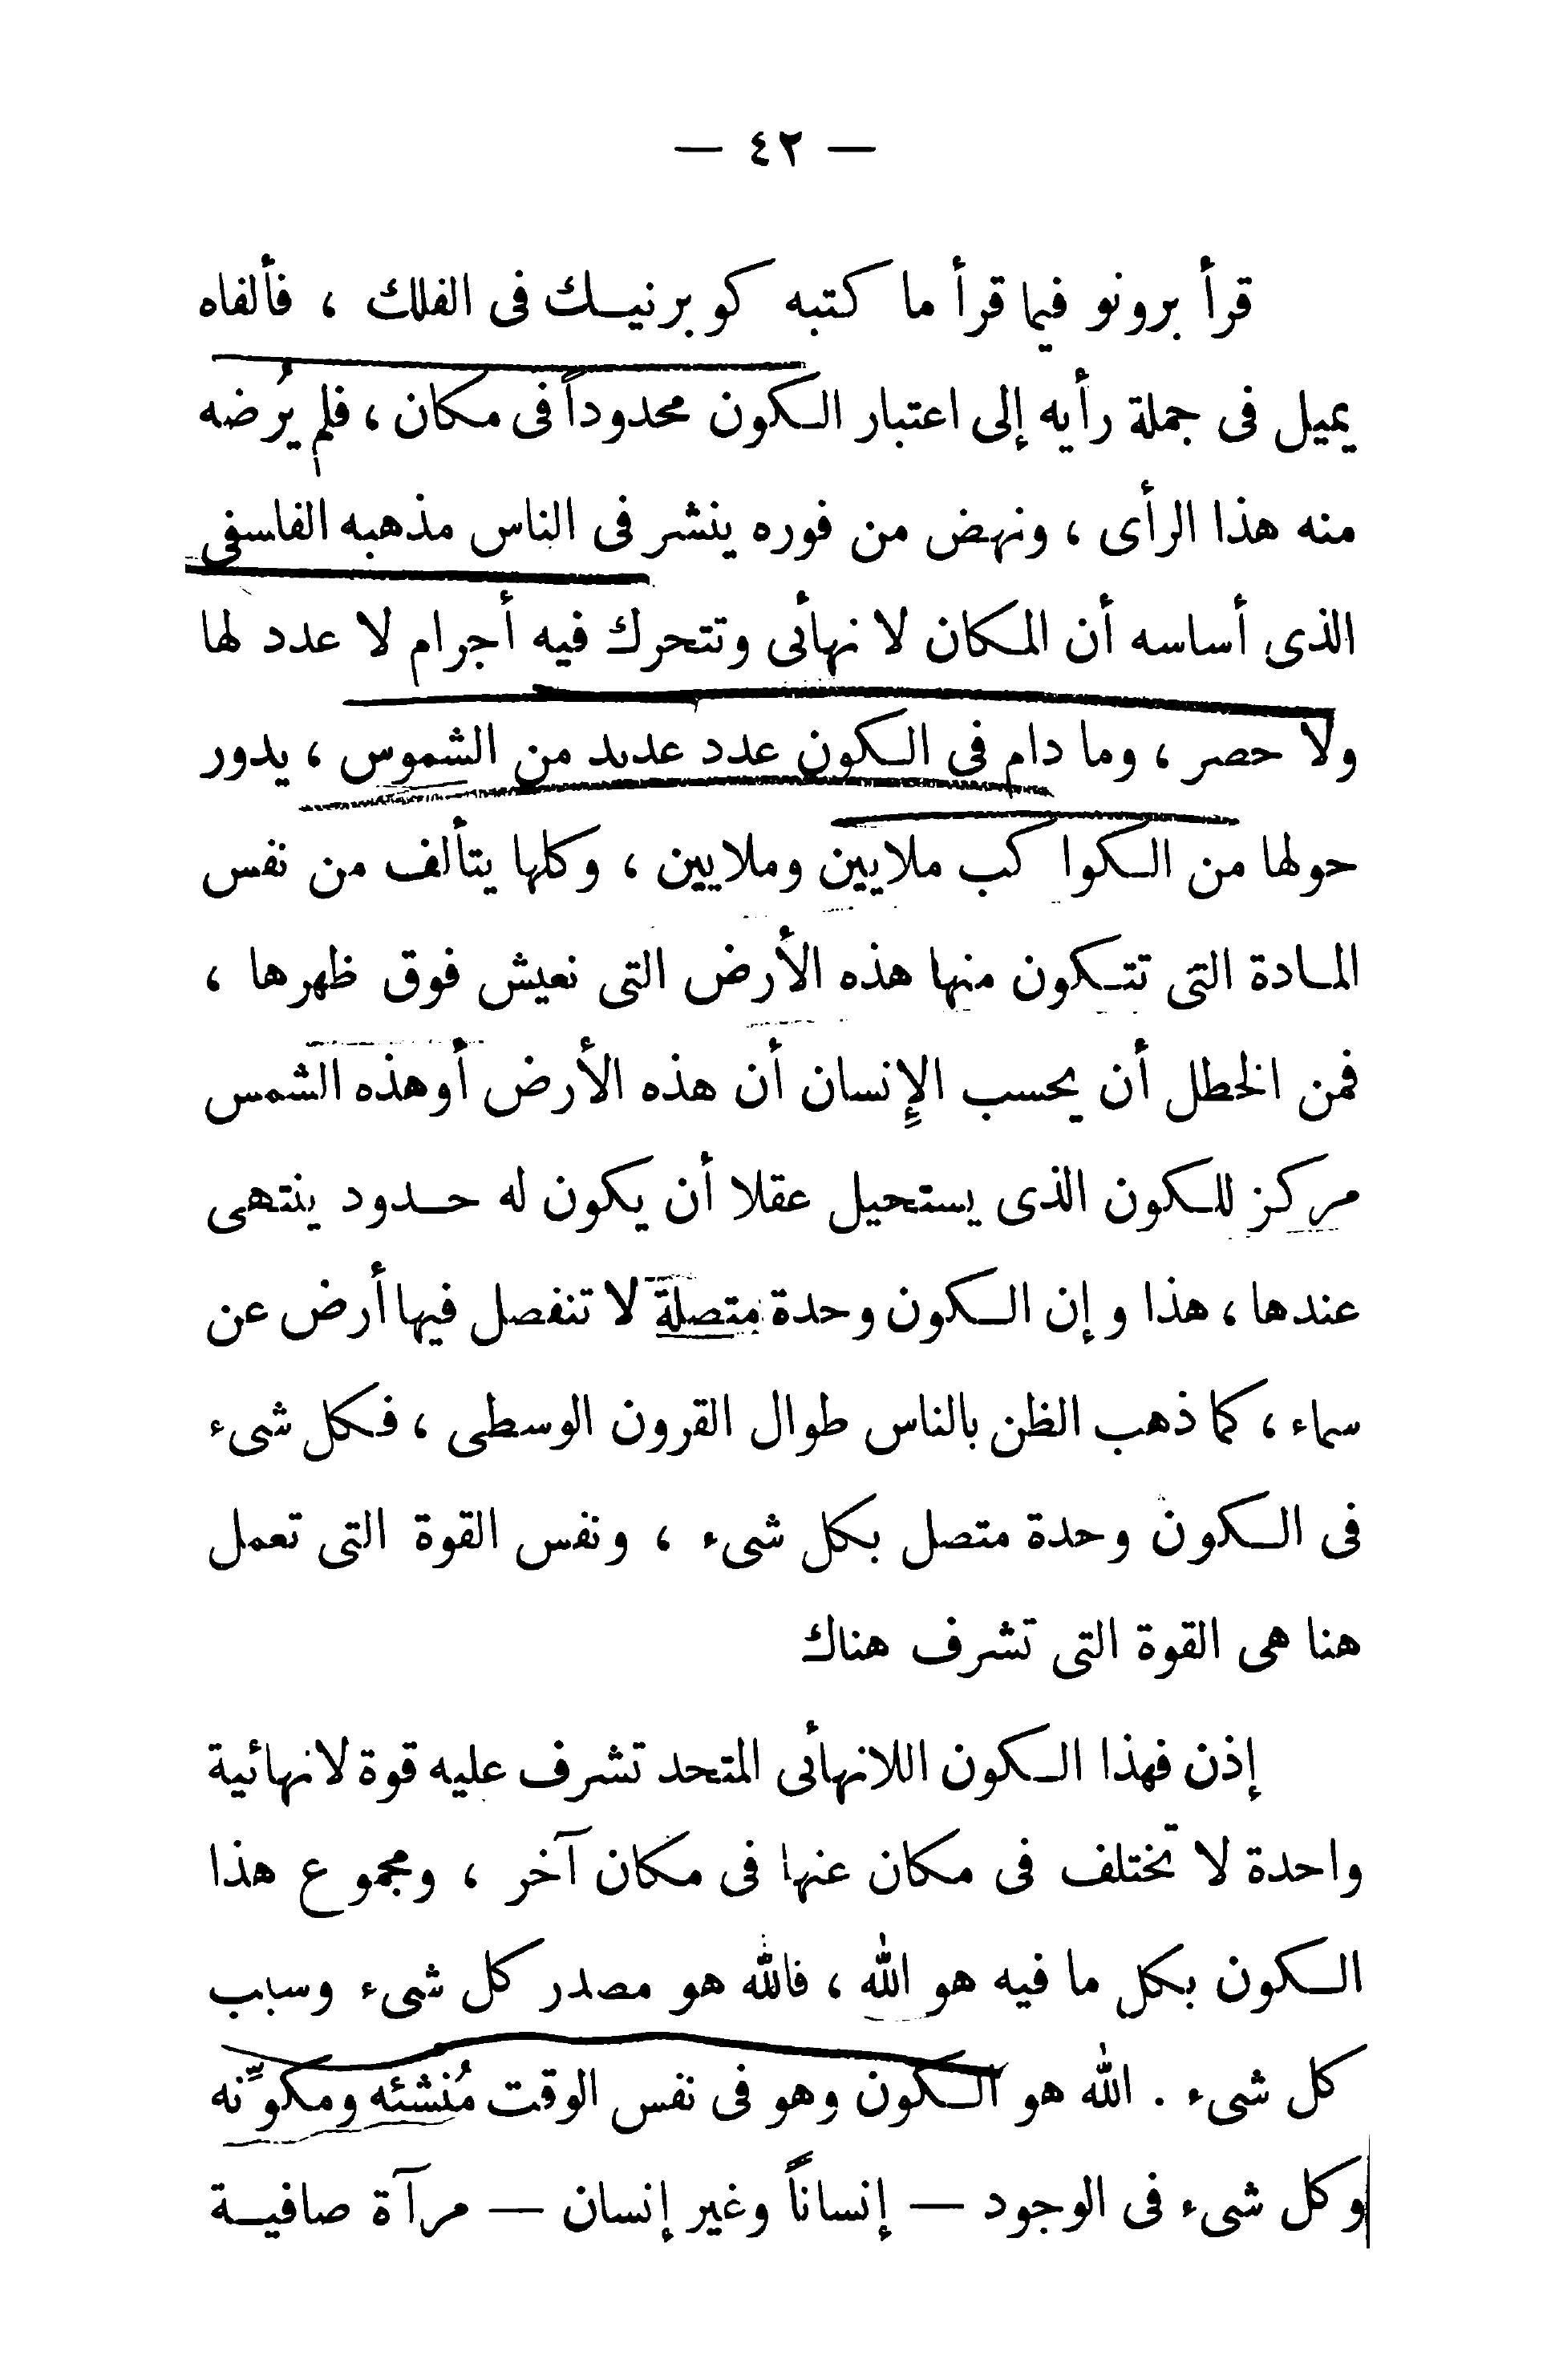 — ٤٢ —
قرأ برونو فيما قرأ ما كتبه كوبرنيـك فى الفلك ، فألفاه
يميل فى جملة رأيه إلى اعتبار الـكون محدوداً فى مكان ، فلم يُرضه
منه هذا الرأى ، ونهض من فوره ينشر فى الناس مذهبه الفلسفى
الذى أساسه أن المـكان لا نهائى وتتحرك فيه أجرام لا عدد لها
ولا حصر ، وما دام فى الـكون عدد عديد من الشموس ، يدور
حولها من الـكواكب ملايين وملايين ، وكلها يتألف من نفس
المـادة التى تتـكون منها هذه الأرض التى نعيش فوق ظهرها ،
فمن الخطل أن يحسب الإنسان أن هذه الأرض أو هذه الشمس
مركز للـكون الذى يستحيل عقلا أن يكون له حـدود ينتهى
عندها ، هذا وإن الـكون وحدة متصلة لا تنفصل فيها أرض عن
سماء ، كما ذهب الظن بالناس طوال القرون الوسطى ، فـكل شىء
فى الـكون وحدة متصل بكل شىء ، ونفس القوة التى تعمل
هنا هى القوة التى تشرف هناك
إذن فهذا الـكون اللانهائى المتحد تشرف عليه قوة لانهائية
واحدة لا تختلف فى مكان عنها فى مكان آخر ، ومجموع هذا
الـكون بكل ما فيه هو الله ، فالله هو مصدر كل شىء وسبب
كل شىء . الله هو الـكون وهو فى نفس الوقت مُنشئه ومكوِّنه
وكل شىء فى الوجود — إنساناً وغير إنسان — مرآة صافيـة